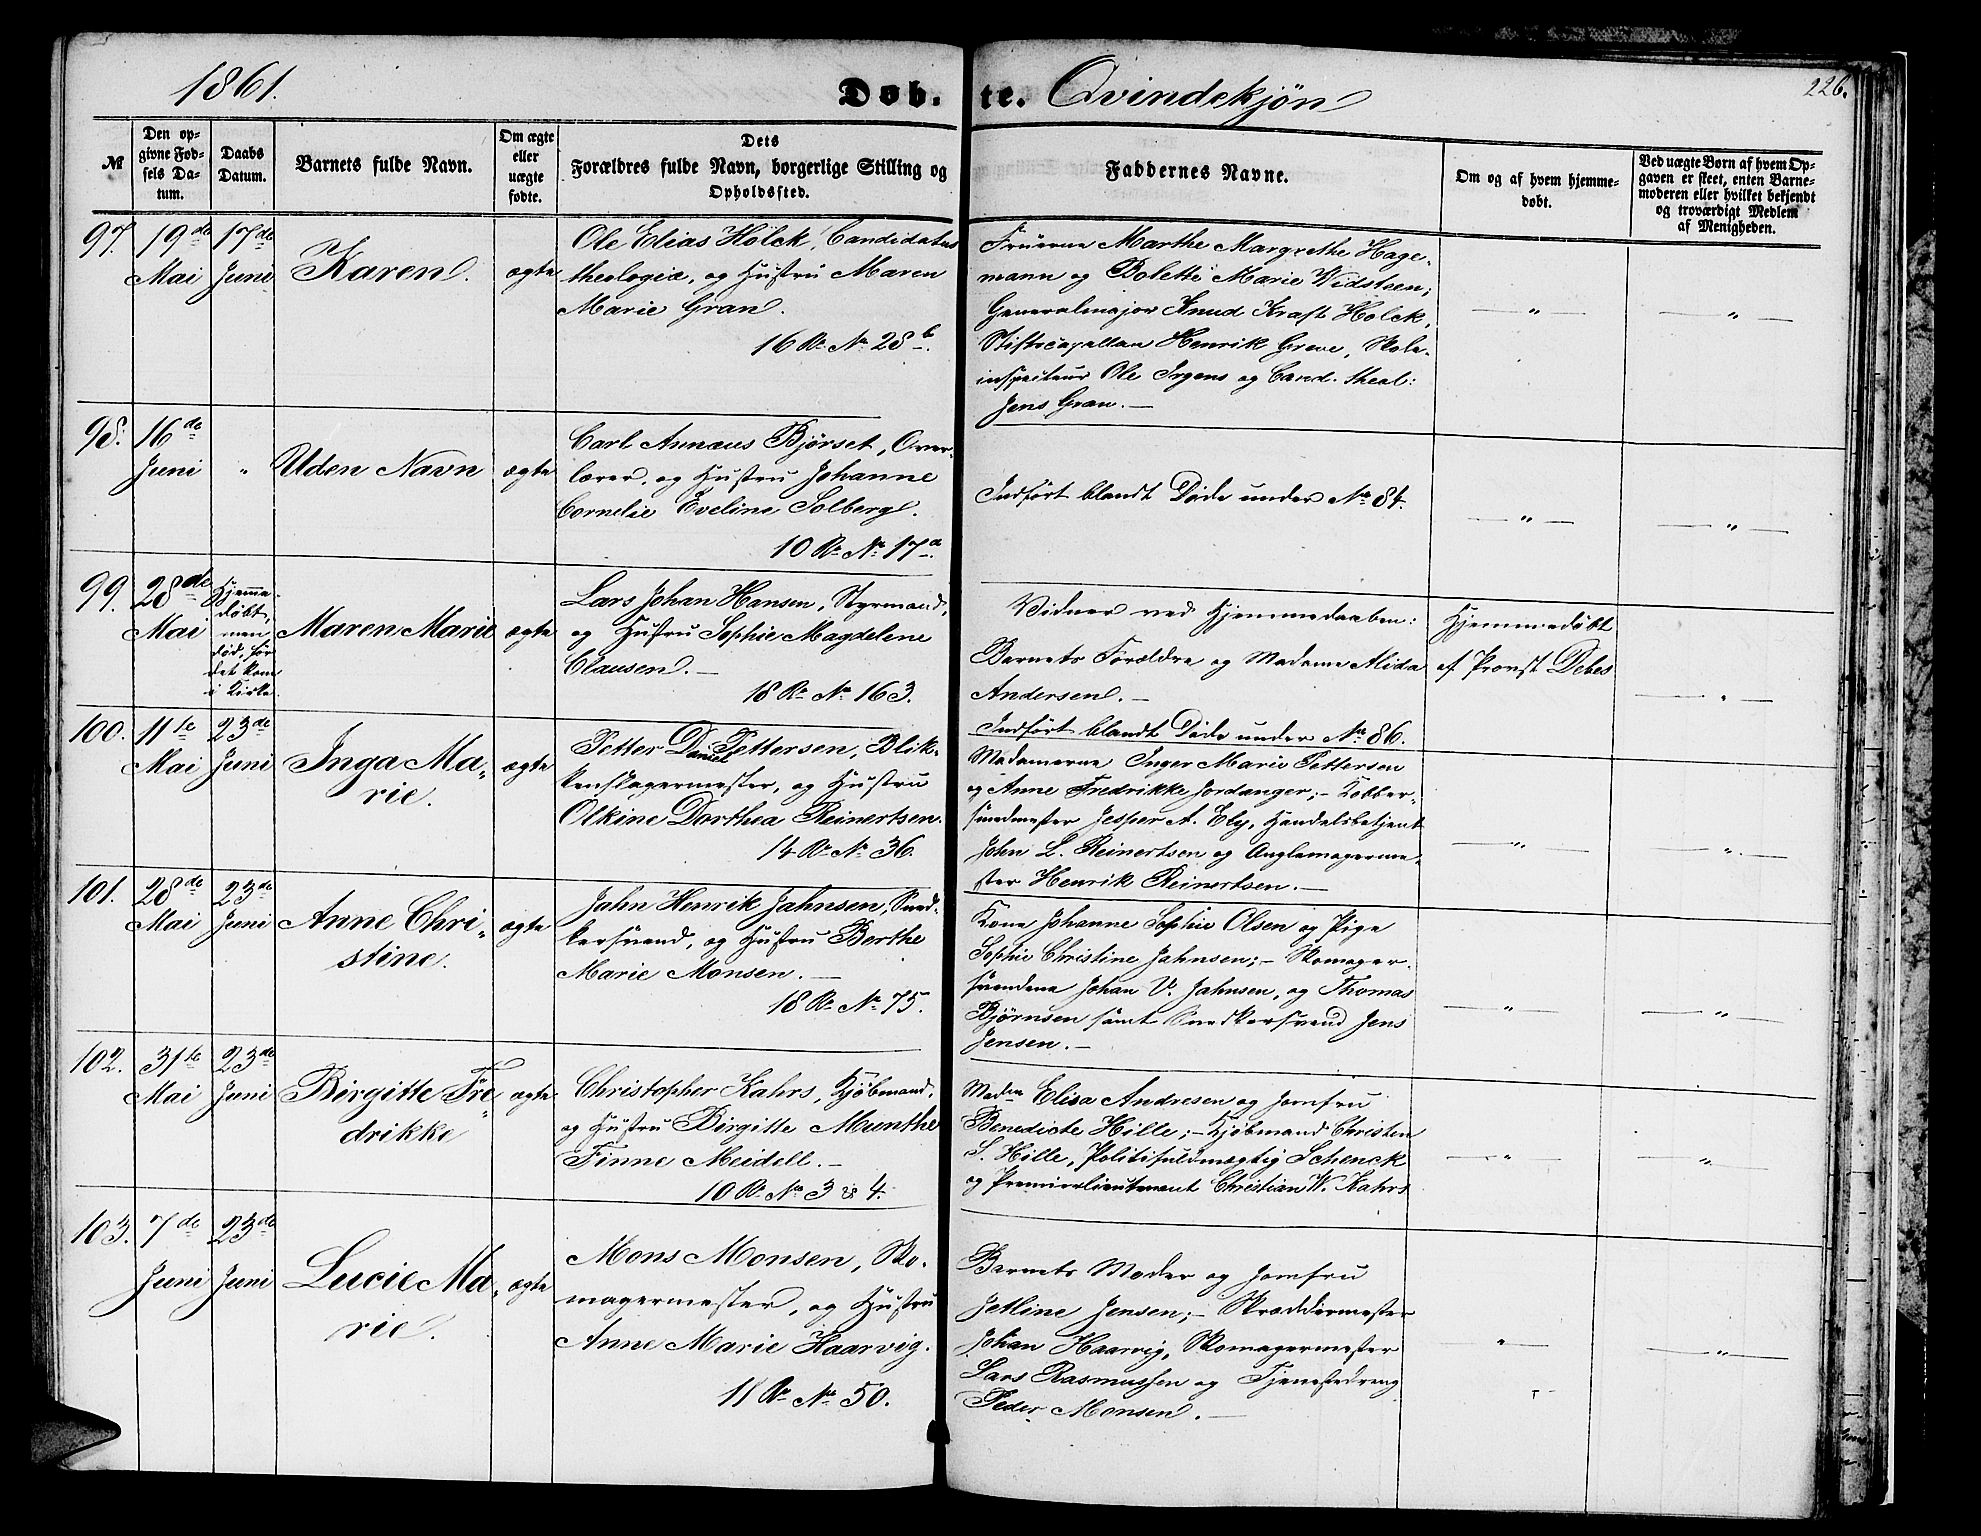 1861.
Døbte. Qvindekjøn
226.
№
Den opgivne Fødsels Datum.
Daabs Datum.
Barnets fulde Navn.
Om ægte eller uægte fødte.
Dets Forældres fulde Navn, borgerlige Stilling og Opholdssted.
Faddernes Navne.
Om og af hvem hjemmedøbt.
Ved uægte Børn af hvem Opgaven er skeet, enten Barnemoderen eller hvilket bekjendt og troværdigt Medlem af Menigheden.
97. 19de Mai
17de Juni
Karen.
ægte
Ole Elias Holck, Candidatus
theologiæ, og Hustru Maren
Marie Gran.
16 R. No 28b.
Fruerne Marthe Margrethe Hage-
mann og Bolette Marie Widsteen;
Generalmajor Knud Kraft Holck,
Stiftscapellan Henrik Greve, Skole-
inspecteur Ole Irgens og Cand. theol:
Jens Gran. —
— " —
— " —
98. 16de Juni
"
Uden Navn
ægte
Carl Annæus Bjørset, Over-
lærer, og Hustru Johanne
Cornelie Eveline Solberg.
10 R. No 17a.
Indført blandt Døde under No 84.
— " —
— " —
99. 28de Mai
Hjemme-
døbt,
men
død, før
det kom
i Kirke.
Maren Marie
ægte
Lars Johan Hansen, Styrmand,
og Hustru Sophie Magdelene
Clausen. —
18 R. No 163.
Vidner ved Hjemmedaaben:
Barnets Forældre og Madame Alida
Andersen. —
Indført blandt Døde under No 86.
Hjemmedøbt
af Provst Debes
— " —
100. 11te Mai
23de Juni
Inga Ma-
rie.
ægte
Petter Daniel Pettersen, Blik-
kenslagermester, og Hustru
Olkine Dorthea Reinertsen.
14 R. No 36.
Madamerne Inger Marie Pettersen
og Anne Fredrikke Jordanger; — Kobber-
smedmester Jesper A. Ely, Handelsbetjent
John L. Reinertsen og Anglemagerme-
ster Henrik Reinertsen. —
— " —
— " —
101. 28de Mai
23de Juni
Anne Chri-
stine.
ægte
Jahn Henrik Jahnsen, Sned-
kersvend, og Hustru Berthe
Marie Monsen. —
18 R. No 75.
Kone Johanne Sophie Olsen og Pige
Sophie Christine Jahnsen; — Skomager-
svendene Johan V. Jahnsen, og Thomas
Bjørnsen samt Snedkersvend Jens
Jensen. —
— " —
— " —
102. 31te Mai
23de Juni
Birgitte Fre-
drikke
ægte
Christopher Kahrs, Kjøbmand,
og Hustru Birgitte Munthe
Finne Meidell. —
10 R. No 3 & 4.
Madme Elisa Andresen og Jomfru
Benedicte Hille; — Kjøbmand Christen
S. Hille, Politifuldmægtig Schenck
og Premierlieutenant Christian W. Kahrs
— " —
— " —
103. 7de Juni
23de Juni
Lucie Ma-
rie.
ægte
Mons Monsen, Sko-
magermester, og Hustru
Anne Marie Haarvig.
11 R. No 50.
Barnets Moder og Jomfru
Jetline Jensen; — Skræddermester
Johan Haarvig, Skomagermester
Lars Rasmussen og Tjenestedreng
Peder Monsen. —
"
— " —